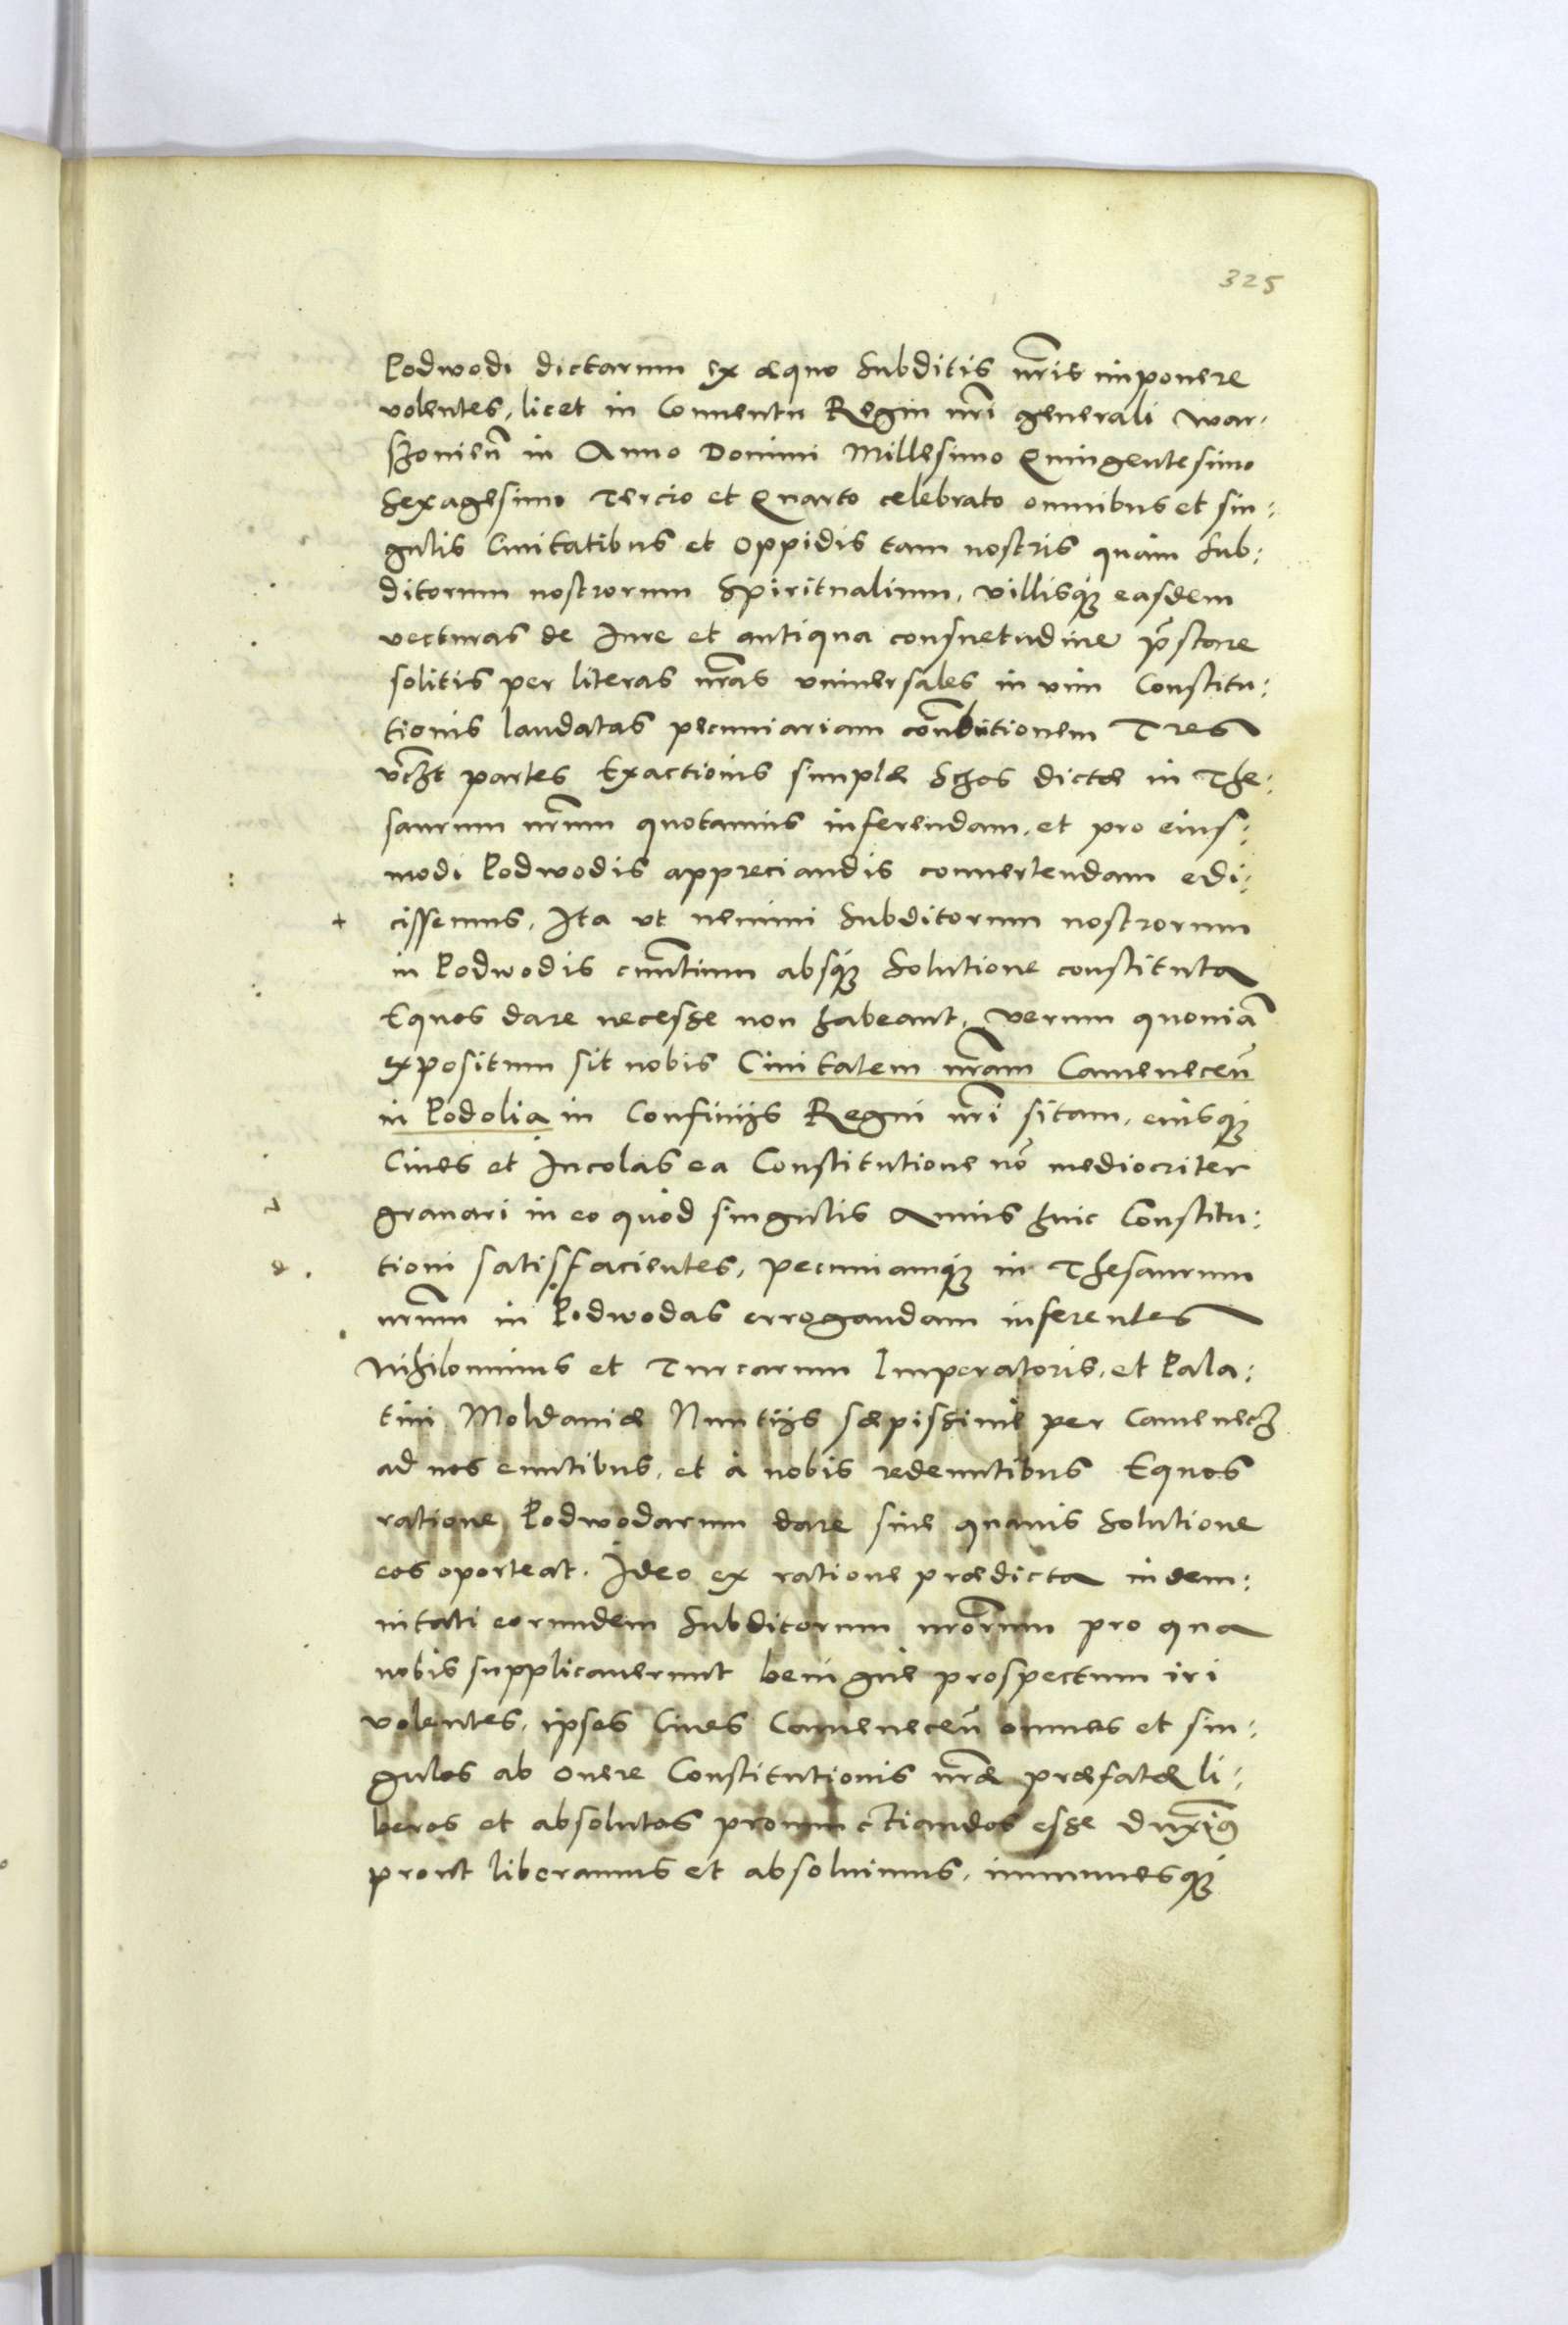 325
Podwodi dictarum ex æquo Subditis nr̃is imponere
volentes, licet in Conuentu Regni nr̃i generali War:
szouien̄ in Anno Domini Millesimo Quingentesimo
Sexagesimo Tercio et Quarto celebrato omnibus et sin:
gulis Ciuitatibus et Oppidis tam nostris quàm Sub:
ditorum nostrorum Spiritualium, villisq́ꝫ easdem
vecturas de Iure et antiqua consuetudine p̃stare
solitis per literas nr̃as vniuersales in vim Constitu:
tionis laudatas pecuniariam contributionem Tres
vc̃ꝫt partes Exactionis simplæ Schos dictæ in The:
saurum nr̃um quotannis inferendam, et pro eius:
modi Podwodis appreciandis conuertendam edi:
cissemus, Ita vt nemini Subditorum nostrorum
in Podwodis eun̄tium absq́ꝫ Solutione constituta
Equos dare necesse non habeant, verum quoniã
expositum sit nobis Ciuitatem nr̃am Camenecen̄
in Podolia in Confinijs Regni nr̃i sitam, eiusq́ꝫ
Ciues et Incolas ea Constitutione nõ mediocriter
grauari in eo quòd singulis Annis huic Constitu:
tioni satisfacientes, pecuniamq́ꝫ in Thesaurum
nr̃um in Podwodas errogandam inferentes
Nihilominus et Turcarum Imperatoris, et Pala:
tini Moldauiæ Nuntijs sæpissimè per Camenecꝫ
ad nos euntibus, et à nobis redeuntibus Equos
ratione Podwodarum dare sine quauis Solutione
eos oporteat. Ideo ex ratione prædicta indem:
nitati eorundem Subditorum nr̃orum pro qua
nobis supplicauerunt benignè prospectum iri
volentes, ipsos Ciues Camenecen̄ omnes et sin:
gulos ab Onere Constitutionis nr̃æ præfatæ li:
beros et absolutos pronunctiandos esse duxim9
prout liberamus et absoluimus, immunesq́ꝫ